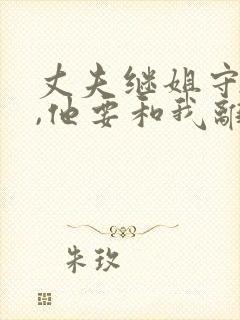 丈夫继姐守
,他要和我離
朱玫